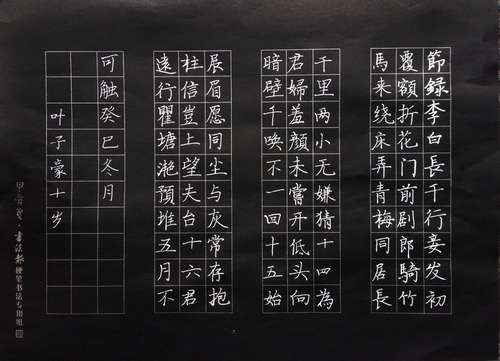 節録李白長干行妾发初
覆額折花门前剧郎騎竹
馬来绕床弄青梅同居長
干里两小无嫌猜十四為
君婦羞顔未嘗开低头向
暗壁千唤不一回十五始
展眉愿同尘与灰常存抱
柱信豈上望夫台十六君
遠行瞿塘滟預堆五月不
可触癸巳冬月
叶子豪十岁
书法报硬笔书法专用纸